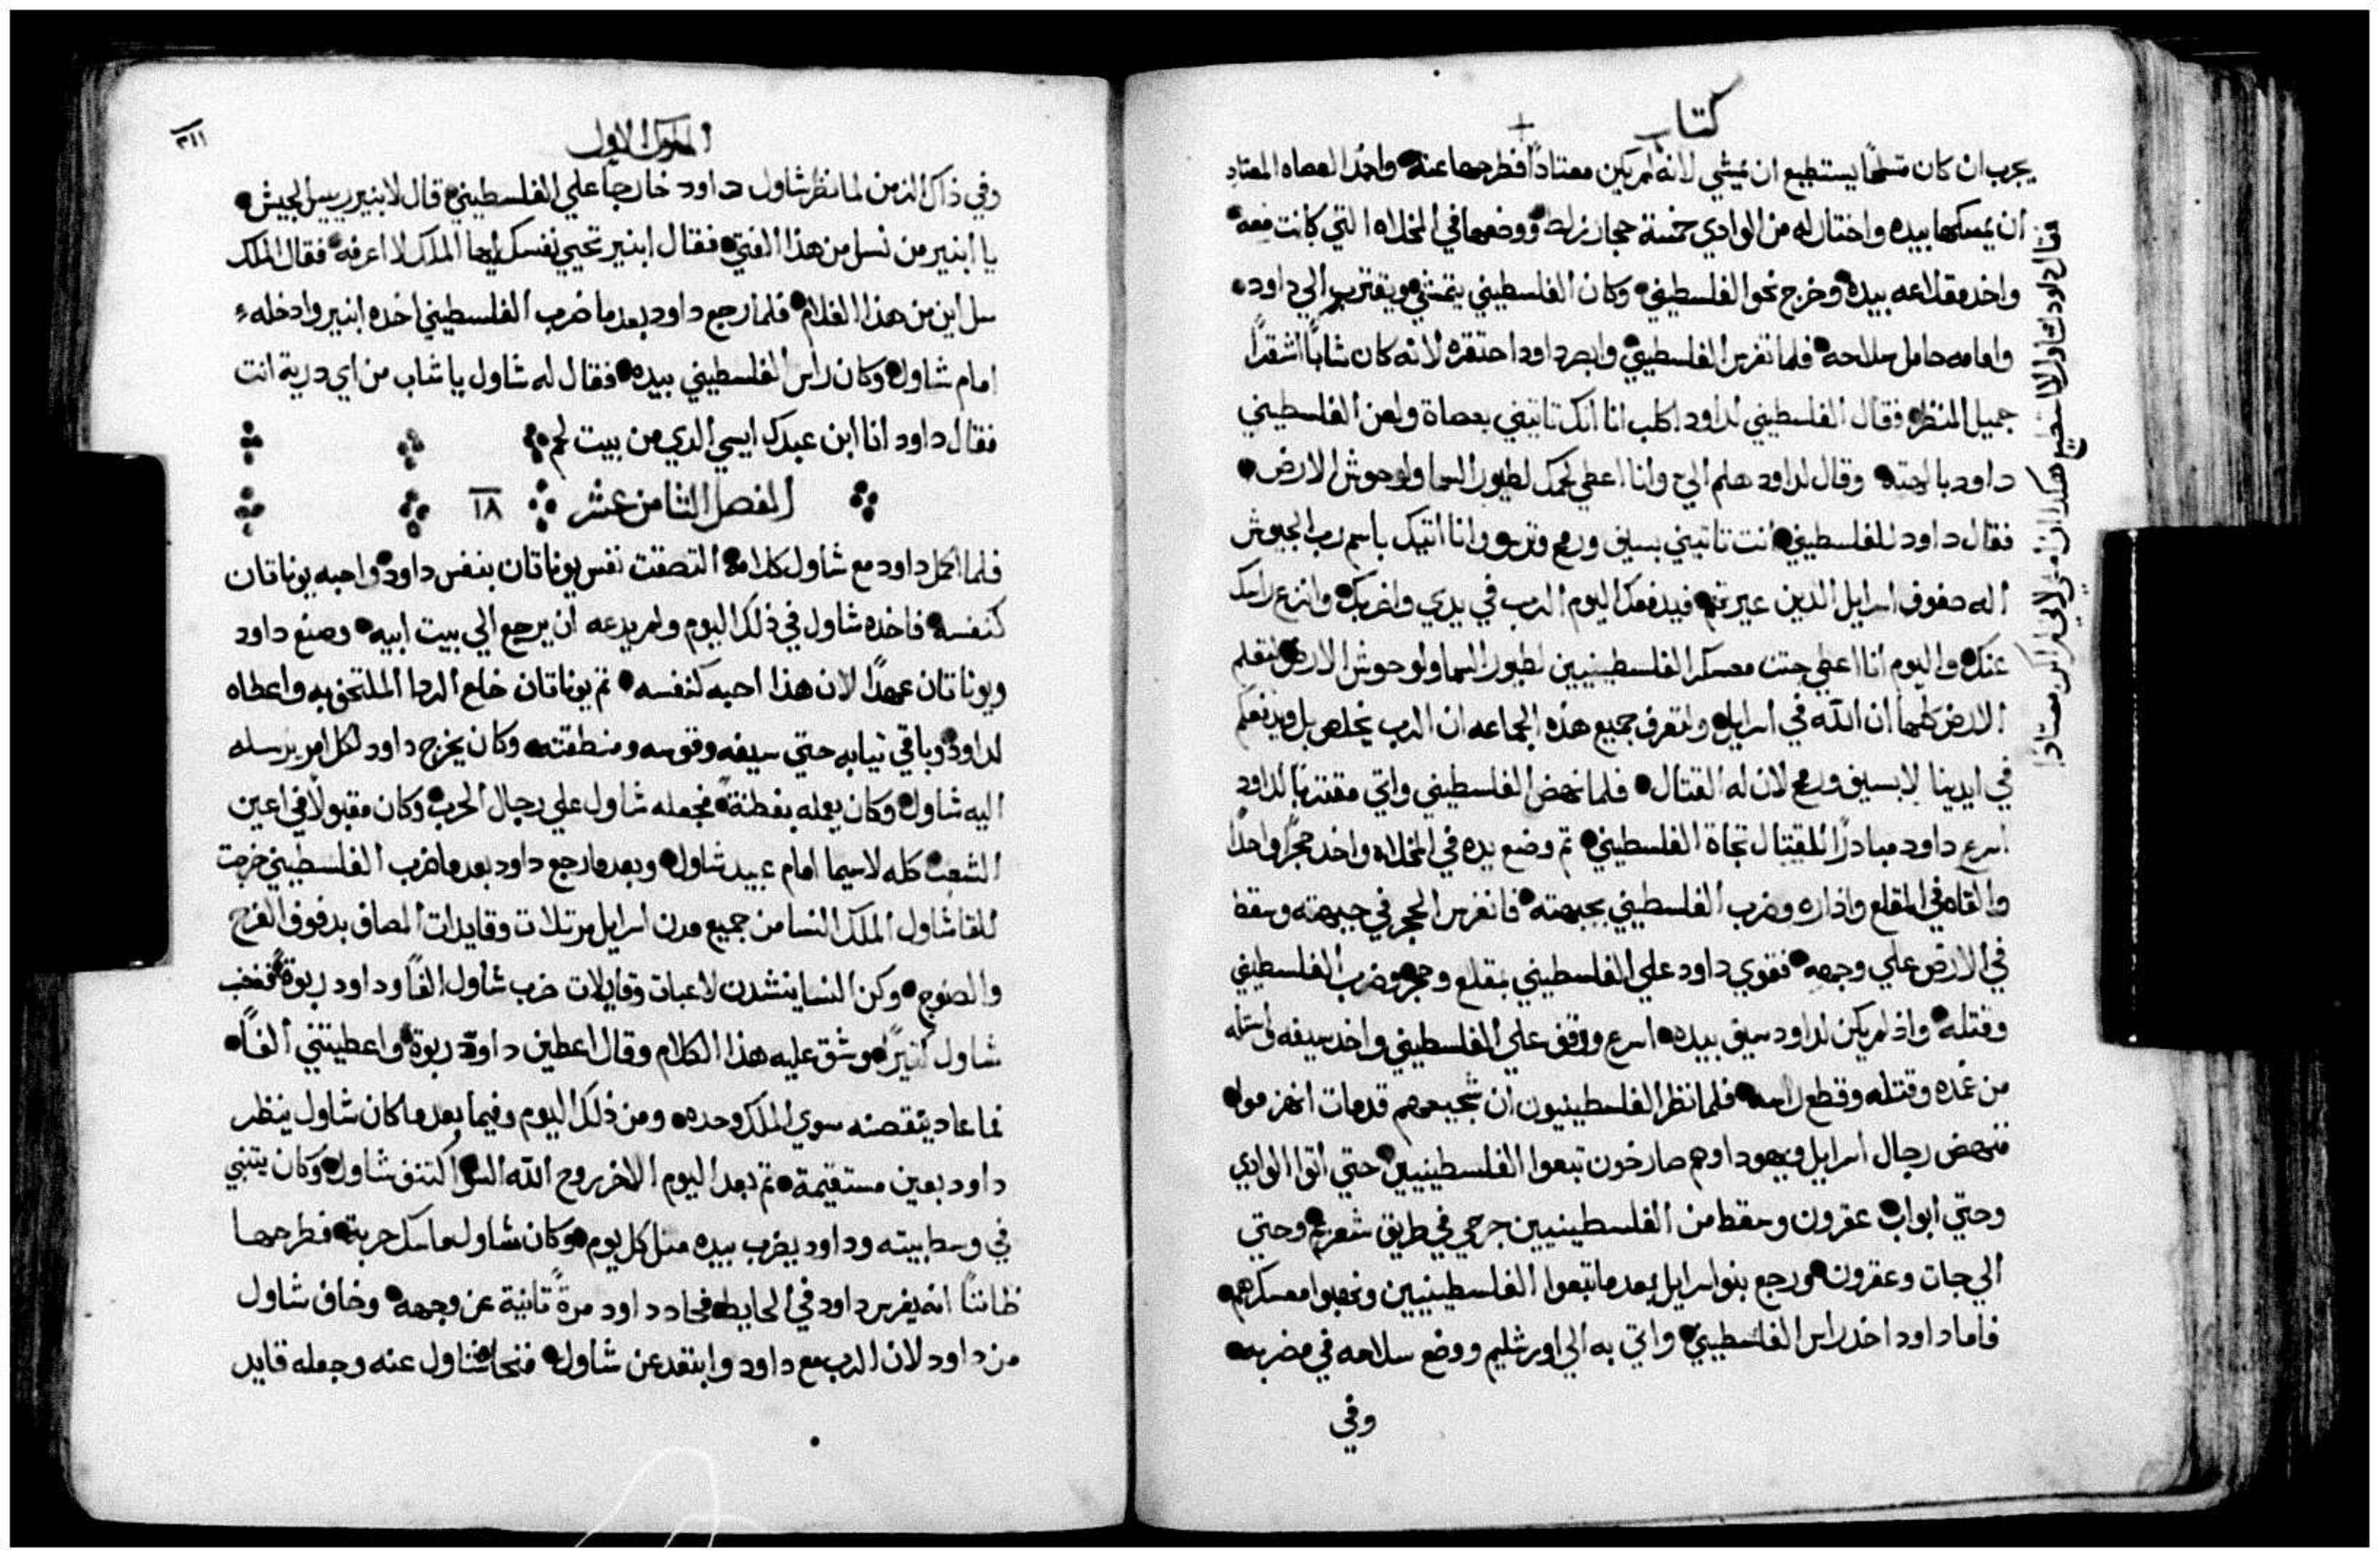 كتاب
يجرب ان كان متسلحًا يستطيع ان يمشي لانه لم يكن معتادًا فطرحها عنه واخد العصاه المعتاد
ان يمسكها بيده واختار له من الوادي خمسة حجار زلط ووضعها في المخلاه التي كانت معه
واخد مقلاعه بيده وخرج نحو الفلسطيني وكان الفلسطيني يتمشي ويقترب الي داود
وامامه حامل سلاحه فلما تفرس الفلسطيني وابصر داود احتقره لانه كان شابًا اشقرًا
جميل المنظر فقال الفلسطيني لداود اكلب انا انك تاتيني بعصاة ولعن الفلسطيني
داود بالهته وقال لداود هلم الي وانا اعطي لحمك لطيور السما ولوحوش الارض
فقال داود للفلسطيني انت تاتيني بسيف ورمح وترس وانا اتيك باسم رب الجيوش
اله صفوف اسرايل الدين عيرتهم فيدفعك اليوم الرب في يدي واضربك وانزع راسك
عنك واليوم انا اعطي جتت معسكر الفلسطينيين لطيور السما ولوحوش الارض لتعلم
الارض كلها ان الله في اسرايل ولتعرف جميع هذه الجماعه ان الرب يخلص بل ويدفعكم
في ايدينا لا بسيف ورمح لان له القتال فلما نهض الفلسطيني واتي مقتربًا لداود
اسرع داود مبادرًا للقتال تجاة الفلسطيني تم وضع يده في المخلاه واخد حجرًا واحدًا
والقاه في المقلع واداره وضرب الفلسطيني بجبهته فانغرس الحجر في جبهته وسقط
في الارض علي وجهه فقوي داود علي الفلسطيني بمقلع وحجر وضرب الفلسطيني
وقتله واذ لم يكن لداود سيف بيده اسرع ووقف علي الفلسطيني واخد سيفه واستله
من غمده وقتله وقطع راسه فلما نظر الفلسطينيون ان شجيعهم قد مات انهزموا
فنهض رجال اسرايل ويهودا وهم صارخون تبعوا الفلسطينيين حتي اتوا الوادي
وحتي ابواب عقرون وسقط من الفلسطينيين جرحي في طريق شعريم وحتي
الي جات وعقرون ورجع بنو اسرايل بعد ما تبعوا الفلسطينيين ونهبوا معسكرهم
فاما داود اخد راس الفلسطيني واتي به الي اورشليم ووضع سلاحه في مضربه
وفي
فقال داود لشاول لا استطيع هكدا ان امشي لاني لم اكن معتادا
الملوك الاول
٣١١
وفي ذاك الزمن لما نظر شاول داود خارجًا علي الفلسطيني قال لابنير رييس الجيش
يا ابنير من نسل من هذا الفتي فقال ابنير تحيي نفسك ايها الملك لا اعرفه فقال الملك
سل ابن من هذا الغلام فلما رجع داود بعد ما ضرب الفلسطيني اخده ابنير وادخله
امام شاول وكان راس الفلسطيني بيده فقال له شاول يا شاب من اي درية انت
فقال داود انا ابن عبدك ايسي الدي من بيت لحم
الفصل الثامن عشر ١٨
فلما اكمل داود مع شاول كلامه التصقت نفس يوناتان بنفس داود واحبه يوناتان
كنفسه فاخده شاول في ذلك اليوم ولم يدعه ان يرجع الي بيت ابيه وصنع داود
ويوناتان عهدًا لان هذا احبه كنفسه تم يوناتان خلع الردا الملتحف به واعطاه
لداود وباقي تيابه حتي سيفه وقوسه ومنطقته وكان يخرج داود لكل امر يرسله
اليه شاول وكان يعمله بفطنة فجعله شاول علي رجال الحرب وكان مقبولًا في اعين
الشعب كله لاسيما امام عبيد شاول وبعد ما رجع داود بعد ما ضرب الفلسطيني خرجت
للقا شاول الملك النسا من جميع مدن اسرايل مرتلات وقايدات المصاف بدفوف الفرح
والصنوج وكن النسا ينشدن لاعبات وقايلات ضرب شاول الفًا وداود ربوة فغضب
شاول كتيرًا وشق عليه هذا الكلام وقال اعطين داود ربوة واعطيتني الفًا
فما عاد ينقصنه سوي الملك وحده ومن ذلك اليوم وفيما بعد ما كان شاول ينظر
داود بعين مستقيمة تم بعد اليوم الاخر روح الله السو اكتنف شاول وكان يتنبي
في وسط بيته وداود يضرب بيده متل كل يوم وكان شاول ماسك حربة فطرحها
ظاننًا انه يغرس داود في الحايط فحاد داود مرةً تانية عن وجهه وخاف شاول
من داود لان الرب مع داود وابتعد عن شاول فنحاه شاول عنه وجعله قايد